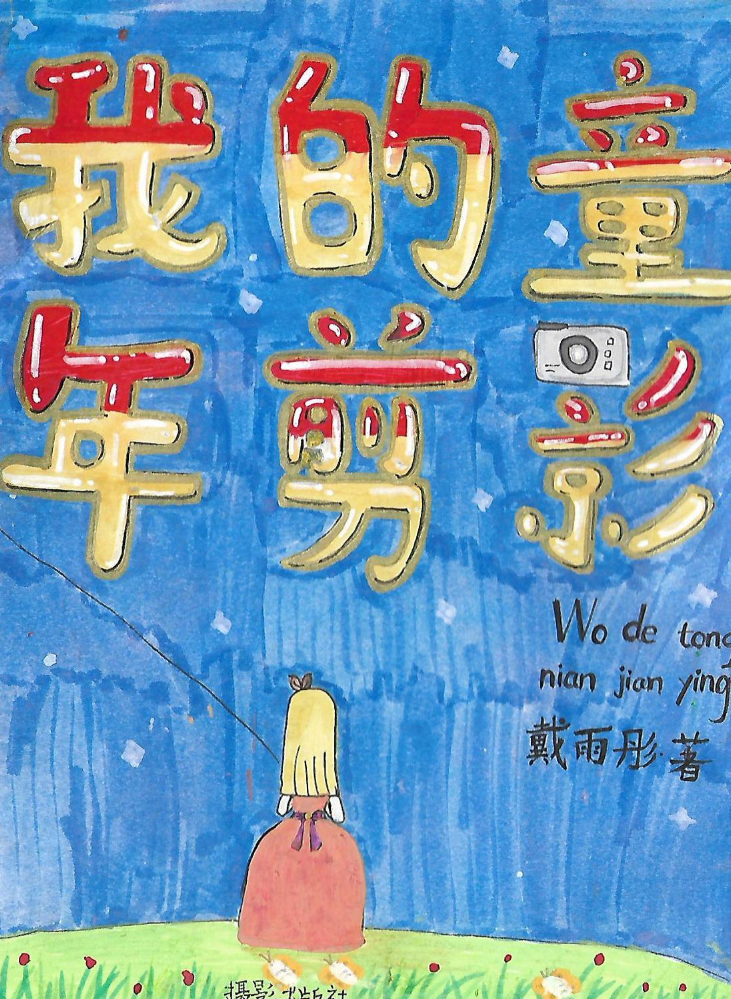 我的童
年剪影
Wo de tong
nian jian ying
戴雨彤·著
摄影出版社